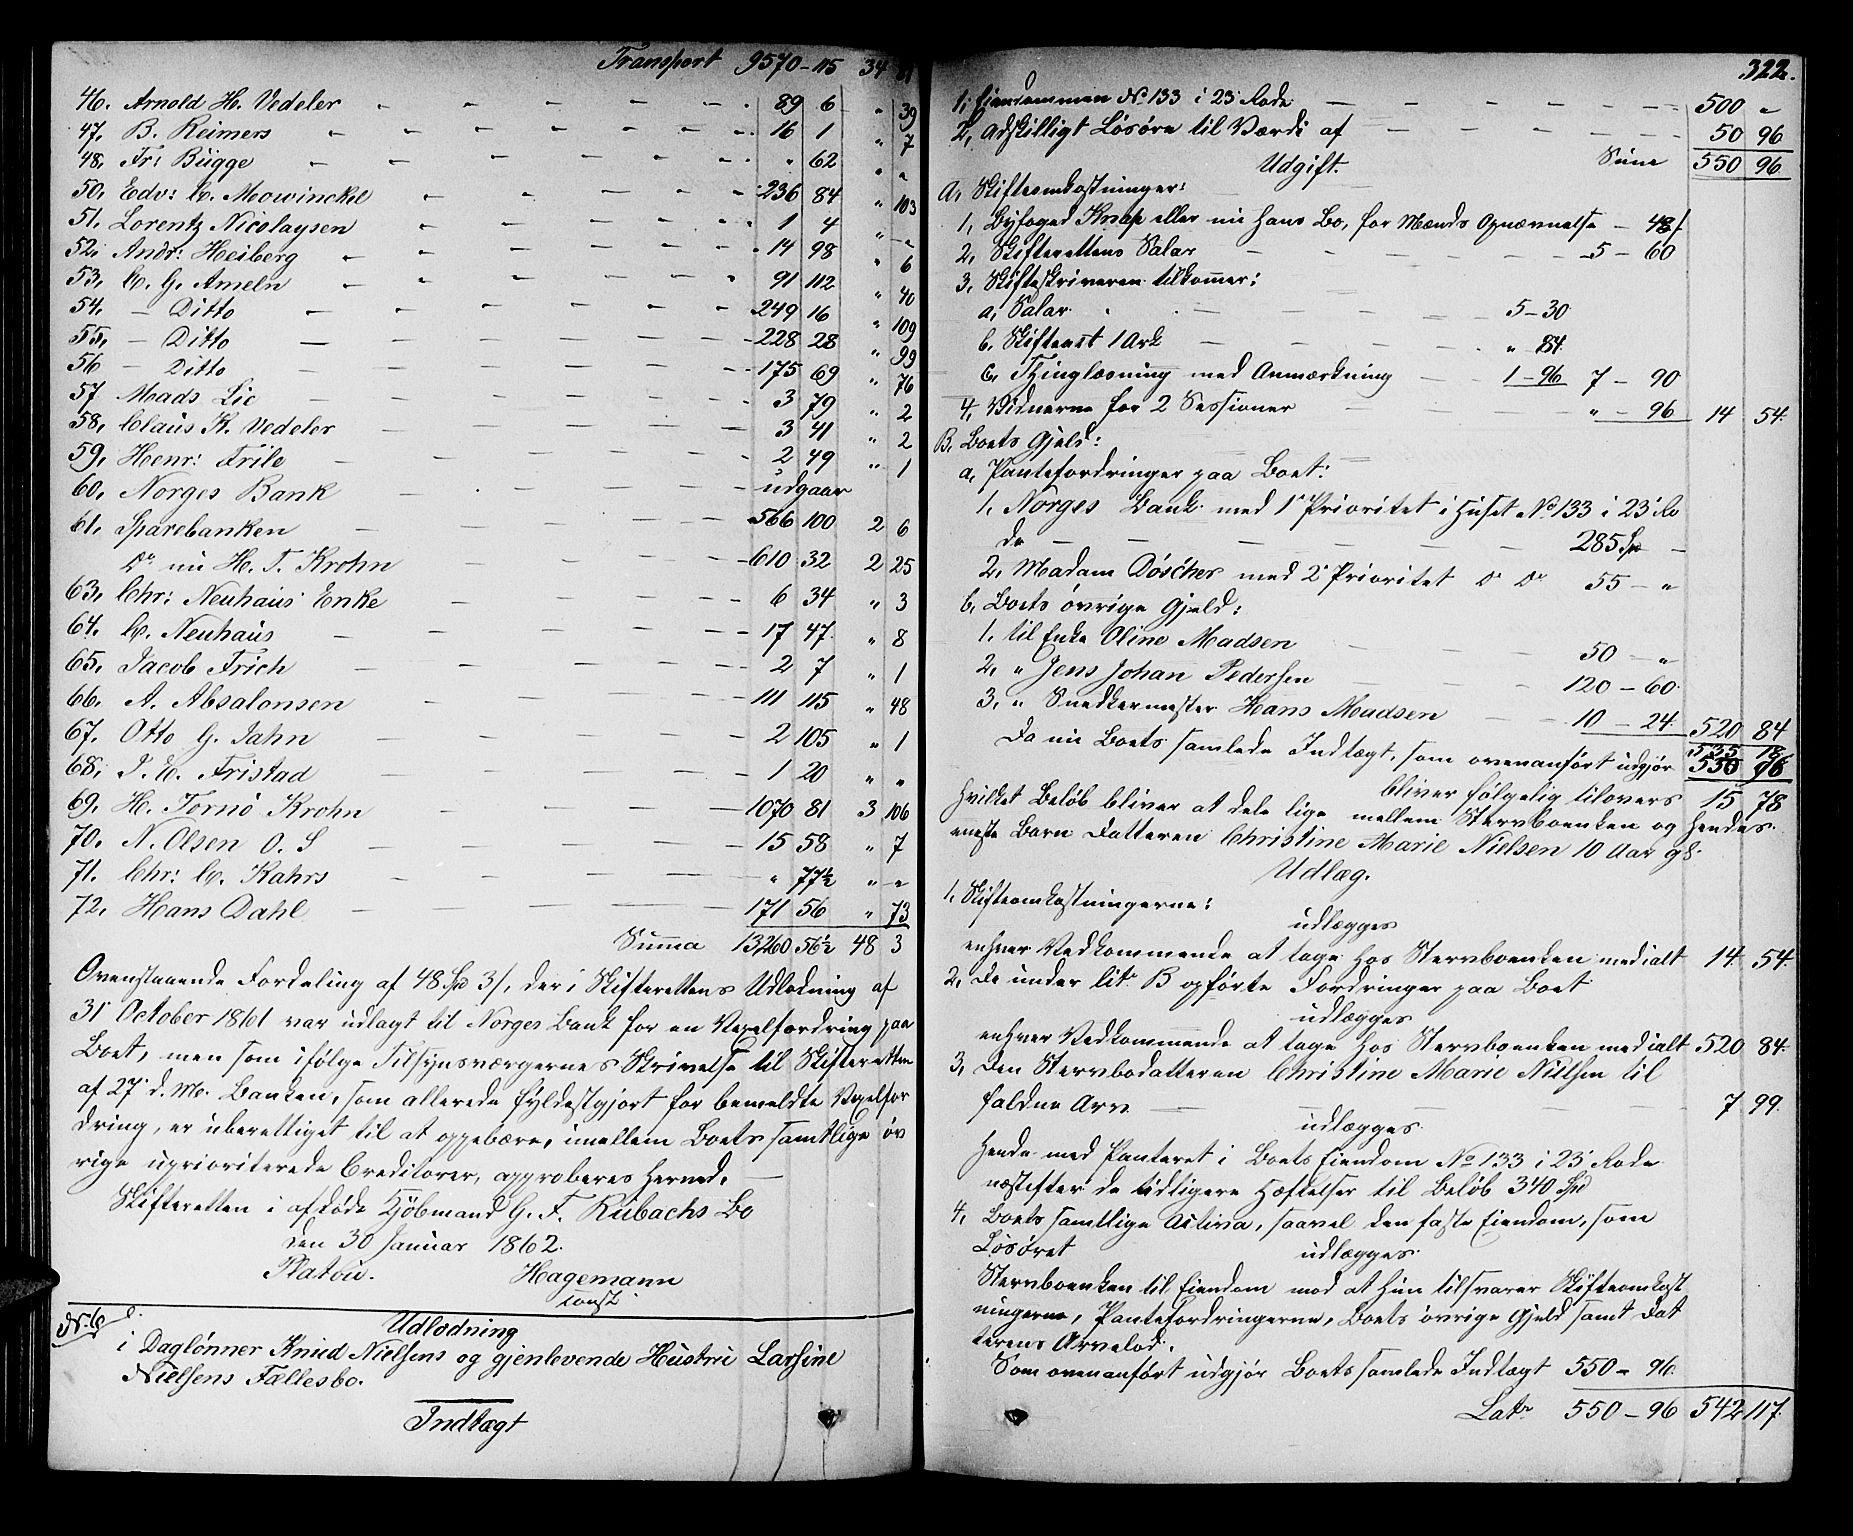 Transport 9570 - 115 34
46. Arnold H. Vedeler - - - 89 6 " 39
47. B. Reimers - - - 16 1 " 7
48. Fr: Bügge - - - " 62 " "
50. Edv: C. Mowinckel - - - 236 84 " 103
51. Lorentz Nicolaysen - - - 1 4 " "
52. Andr: Heiberg - - - 14 98 " 6
53. C. G. Ameln - - - 91 112 " 40
54. - Ditto - - - 249 16 " 109
55. - Ditto - - - 228 28 " 99
56 - Ditto - - - 175 69 " 76
57 Mads Lie - - - 3 79 " 2
58. Claus K. Vedeler - - - 3 41 " 2
59. Henr: Friele - - - 2 49 " 1
60. Norges Bank - - - udgaar
61. Sparebanken - - - 566 100 2 6
Do nu H. T. Krohn - - - 610 32 2 25
63. Chr: Neuhaus' Enke - - - 6 34 " 3
64. C. Neuhaüs - - - 17 47 " 8
65. Jacob Frich - - - 2 7 " 1
66. A. Absalonsen - - - 111 115 " 48
67. Otto G. Jahn - - - 2 105 " 1
68. J. E. Fristad - - - 1 20 " "
69. H. Fornö Krohn - - - 1070 81 3 106
70. N. Olsen O. S - - - 15 58 " 7
71. Chr: C. Kahrs - - - " 77½ " "
72. Hans Dahl - - - 171 56 " 73
Summa 13,260 56½ 48 3
Ovenstaaende Fordeling af 48 Spd 3/, der i Skifterettens Udlodning af
31 October 1861 var udlagt til Norges Bank for en Vexelfordring paa
Boet, men som ifølge Tilsynsværgernes Skrivelse til Skifteretten
af 27' d. M. Banken, som allerede fyldestgjort for bemeldte Vexelfor
dring, er uberettiget til at oppebære, imellem Boets samtlige öv
rige uprioriterede Creditorer, approberes herved.
Skifteretten i afdöde Kjöbmand G. F. Kübachs Bo
den 30 Januar 1862.
Platou. Hagemann
const
No. 6 d. Udlodning
i Daglønner Knud Nielsens og gjenlevende Hustru Larsine
Nielsens Fællesbo.
Indtægt
322.
1, Eiendommen No. 133 i 23' Rode - - - 500 "
2, Adskilligt Løsøre til Værdi af - - - 50 96
Udgift. Süme 550 96
A, Skifteomkostninger:
1, Byfoged Knap eller nu hans Bo, for Mænds Opnævnelse - 48/
2, Skifterettens Salar - - - 5 - 60
3, Skifteskriveren tilkommer:
a, Salar - - - 5 - 30
b, Skifteact 1 Ark - - - " 84
c, Thinglæsning med Anmærkning - - 1 - 96 7 - 90
4, Vidnerne for 2 Sessioner - - " - 96 14 54.
B, Boets Gjeld:
a, Pantefordringer paa Boet:
1, Norges Bank med 1' Prioritet i Huset No 133 i 23' Ro
de - - - 285 Spd -
2, Madam Döscher med 2' Prioritet do do 55 - "
b, Boets övrige Gjeld:
1, til Enke Oline Madsen - - - 50 - "
2, " Jens Johan Pedersen - - - 120 - 60.
3, " Snedkermester Hans Madsen - - 10 - 24 520 84
535 18
Da nu Boets samlede Indtægt, som ovenanført udgjør 550 96
bliver følgelig tilovers 15 78
hvilket Beløb bliver at dele lige mellem Stervboenken og hendes
eneste Barn Datteren Christine Marie Nielsen 10 Aar gl:
Udlæg.
1, Skifteomkostningerne:
udlægges
enhver Vedkommende at tage hos Stervboenken med ialt 14 54.
2, De under litr B opførte Fordringer paa Boet
udlægges
enhver Vedkommende at tage hos Stervboenken med ialt 520 84.
3, Den Stervbodatteren Christine Marie Nielsen til
faldne Arv - - - 7 99.
udlægges
hende med Panteret i Boets Eiendom No 133 i 23' Rode
næstefter de tidligere Hæftelser til Beløb 340 Spd
4, Boets samtlige Activa, saavel den faste Eiendom, som
Løsøret udlægges
Stervboenken til Eiendom mod at hun tilsvarer Skifteomkost
ningerne, Pantefordringerne, Boets øvrige Gjeld samt Dat
terens Arvelod.
Som ovenanført udgjør Boets samlede Indtægt 550 - 96.
Latr 550 - 96 542 117.